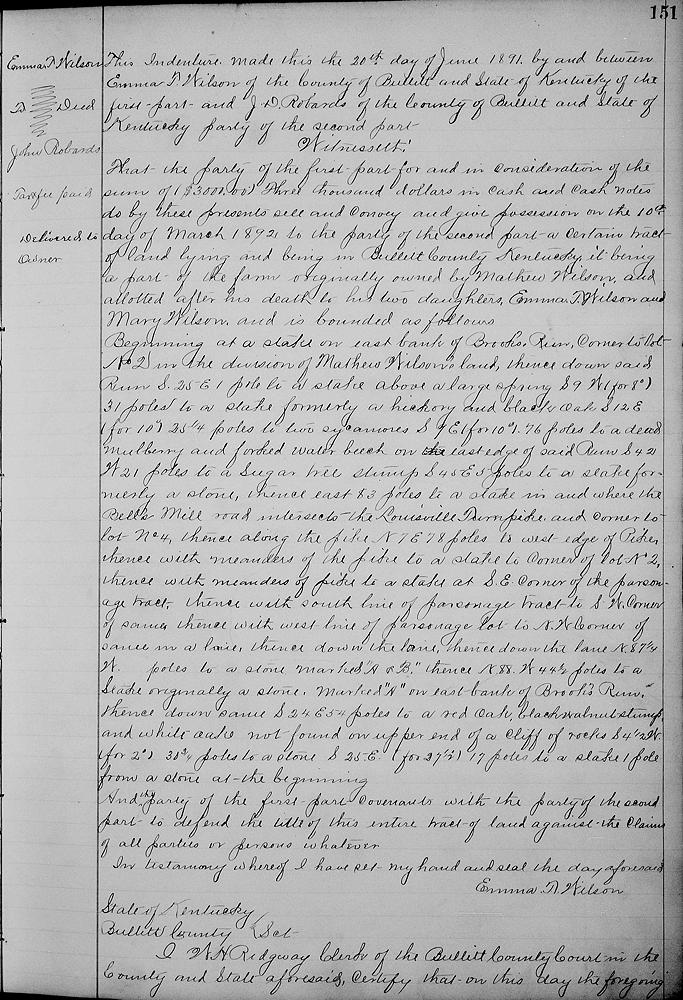 151
Emma T. Wilson
To Deed
John Robards
Tax & fee paid
Delivered to
Owner
This Indenture made this the 20th day of June 1891, by and between
Emma T. Wilson of the County of Bullitt and State of Kentucky of the
first part and J. D. Robards of the County of Bullitt and State of
Kentucky party of the second part
Witnesseth!
That the party of the first part for and in consideration of the
sum of ($3000.00) Three thousand dollars in cash and cash notes
do by these presents sell and convey and give possession on the 10th
day of March 1892, to the party of the second part a certain tract
of land lying and being in Bullitt County Kentucky, it being
a part of the farm originally owned by Mathew Wilson, and
allotted after his death to his two daughters, Emma T. Wilson and
Mary Wilson, and is bounded as follows
Beginning at a stake on east bank of Brooks Run, Corner to lot
No 2 in the division of Mathew Wilson's land, thence down said
Run S. 25 E 1 pole to a stake above a large spring S 9 W (for 8°)
31 poles to a stake formerly a hickory and black Oak S 12 E
(for 10°) 25 1/4 poles to two sycamores S 9 E (for 10°). 76 poles to a dead
mulberry and forked water beech on the east edge of said Run S 42
W 21 poles to a Sugar tree stump S 45 E 5 poles to a stake for-
merly a stone, thence east 83 poles to a stake in and where the
Bells Mill road intersects the Louisville Turnpike, and corner to
lot No 4, thence along the pike N 7 E 78 poles to west edge of Pike,
thence with meanders of the pike to a stake to Corner of lot No 2,
thence with meanders of pike to a stake at S.E. Corner of the parson-
age tract, thence with south line of parsonage tract to S. W. Corner
of same, thence with west line of parsonage lot to N. W. Corner of
same in a lane, thence down the lane, thence down the lane N. 87 1/4
W. poles to a stone marked "A & B." thence N. 88. W 44 1/2 poles to a
Stake originally a stone, marked "A" on east bank of Brook's Run,
thence down same S 24 E 54 poles to a red Oak, black walnut stump,
and white oak not found on upper end of a cliff of rocks S 4 1/2 W.
(for 2°) 30 3/4 poles to a stone S 25 E. (for 27 1/2) 17 poles to a stake 1 pole
from a stone at the beginning
And the party of the first part Covenants with the party of the second
part to defend the title of this entire tract of land against the claims
of all parties or persons whatever
In testimony whereof I have set my hand and seal the day aforesaid
Emma T. Wilson
State of Kentucky
Bullitt County Sct
I W. H. Ridgway Clerk of the Bullitt County Court in the
County and State aforesaid, Certify that on this day the foregoing